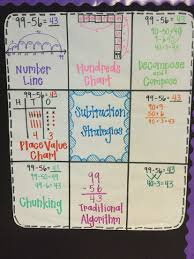 99-56=43
Number
Line
Hundreds
Chart
99-56=43
90-50=40
9-6=3
Decompose
and
Compose
99-56=43
H T O
4 3
Place Value
Chart
Subtraction
Strategies
99-56=43
90+9
50+6
40+3=43
99-56=43
99-50=49
49-6=43
Chunking
99
-56
43
Traditional
Algorithm
99-56=43
40+3=43